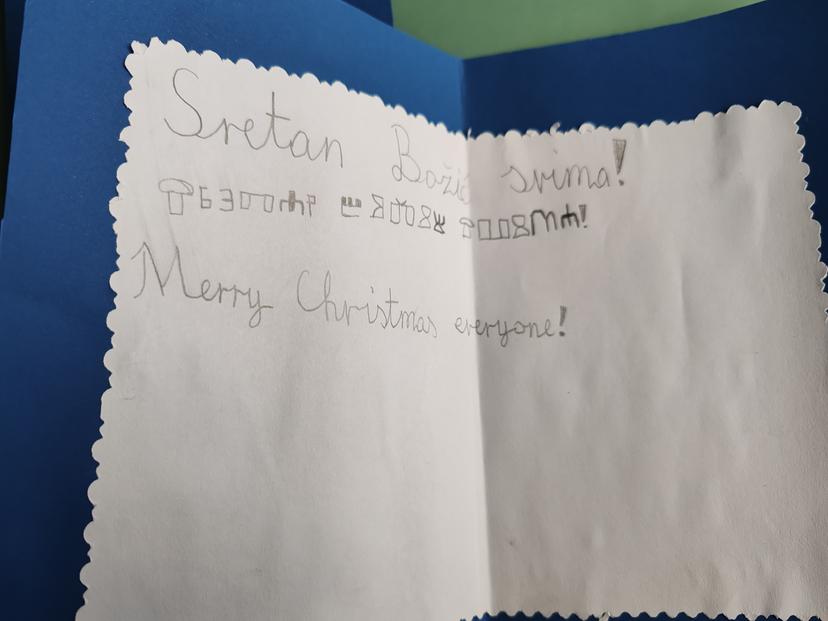 Sretan Božić svima!
ⰔⰓⰅⰕⰀⰐ ⰁⰑⰆⰋⰝ ⰔⰂⰋⰏⰀ!
Merry Christmas everyone!